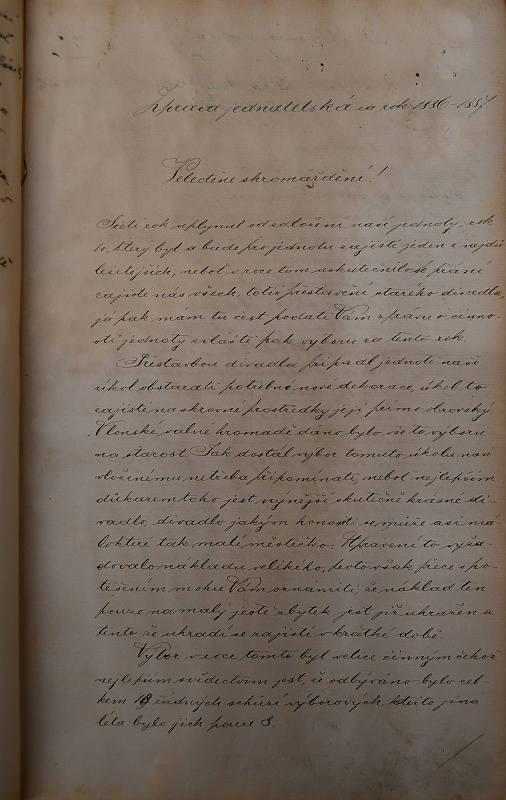 Zpráva jednatelská za rok 1886-1887
Veleděné shromáždění!
Třetí rok uplynul od založení naší jednoty, rok
to, který byl a bude pro jednotu zajisté jeden z nejdů
ležitějších, neboť v roce tom uskutečnilo se přání
zajisté nás všech, totiž přestavění starého divadla,
já pak mám tu čest podati Vám zprávu o činno-
sti jednoty zvláště pak výboru za tento rok.
Přestavbou divadla připadl jednotě naší
úkol obstarati potřebné nové dekorace, úkol to
zajisté na skrovné prostředky její přímo obrovský.
V loňské valné hromadě dáno bylo vše to výboru
na starost. Jak dostál výbor tomuto úkolu naň
vloženému netřeba připomínati, neboť nejlepším
důkazem toho jest nynější skutečně krásné di-
vadlo, divadlo jakým honositi se může asi má-
lokteré tak malé městečko. Upravení to vyža-
dovalo nákladu velikého, proto však přece s po-
těšením mohu Vám oznámiti, že náklad ten
pouze na malý ještě zbytek jest již uhrazen a
tento že uhradí se zajisté v krátké době.
Výbor v roce tomto byl velice činným čehož
nejlepším svědectvím jest, že odbýváno bylo cel-
kem 18 řádných schůzí výborových, kdežto jiná
léta bylo jich pouze 8.